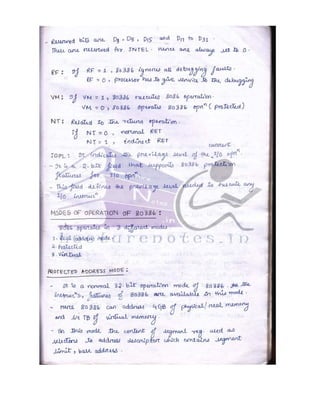 - Reserved bits are D3 - D5, D15 and D18 to D31
These are reserved for INTEL. Hence are always set to 0.
RF: If RF = 1, 80386 ignores all debugging faults.
RF = 0, processor has to give service to the debugging
VM: If VM = 1, 80386 executes 8086 operation.
VM = 0, 80386 operates 80386 opnⁿ (protected)
NT: Related to the return operation.
If NT = 0, normal RET
NT = 1, indirect RET
current
IOPL: It indicates the previlage level of the I/O opnⁿ.
- It is a 2-bit field that supports 80386 protection
features for I/O opnⁿ.
- This field defines the previlage level needed to execute any
I/O instrucⁿ
MODES OF OPERATION OF 80386:
80386 operates in 3 different modes
1. Real address mode
2. Protected
3. Virtual
arenotes.in
PROTECTED ADDRESS MODE:
- It is a normal 32 bit operation mode of 80386. So the
instrucⁿs, features of 80386 are available in this mode.
- Here 80386 can address 4GB of physical/real memory
and 64 TB of virtual memory.
- In this mode the content of segment reg. used as
selectors to address descriptors which contains segment
limit, base address.